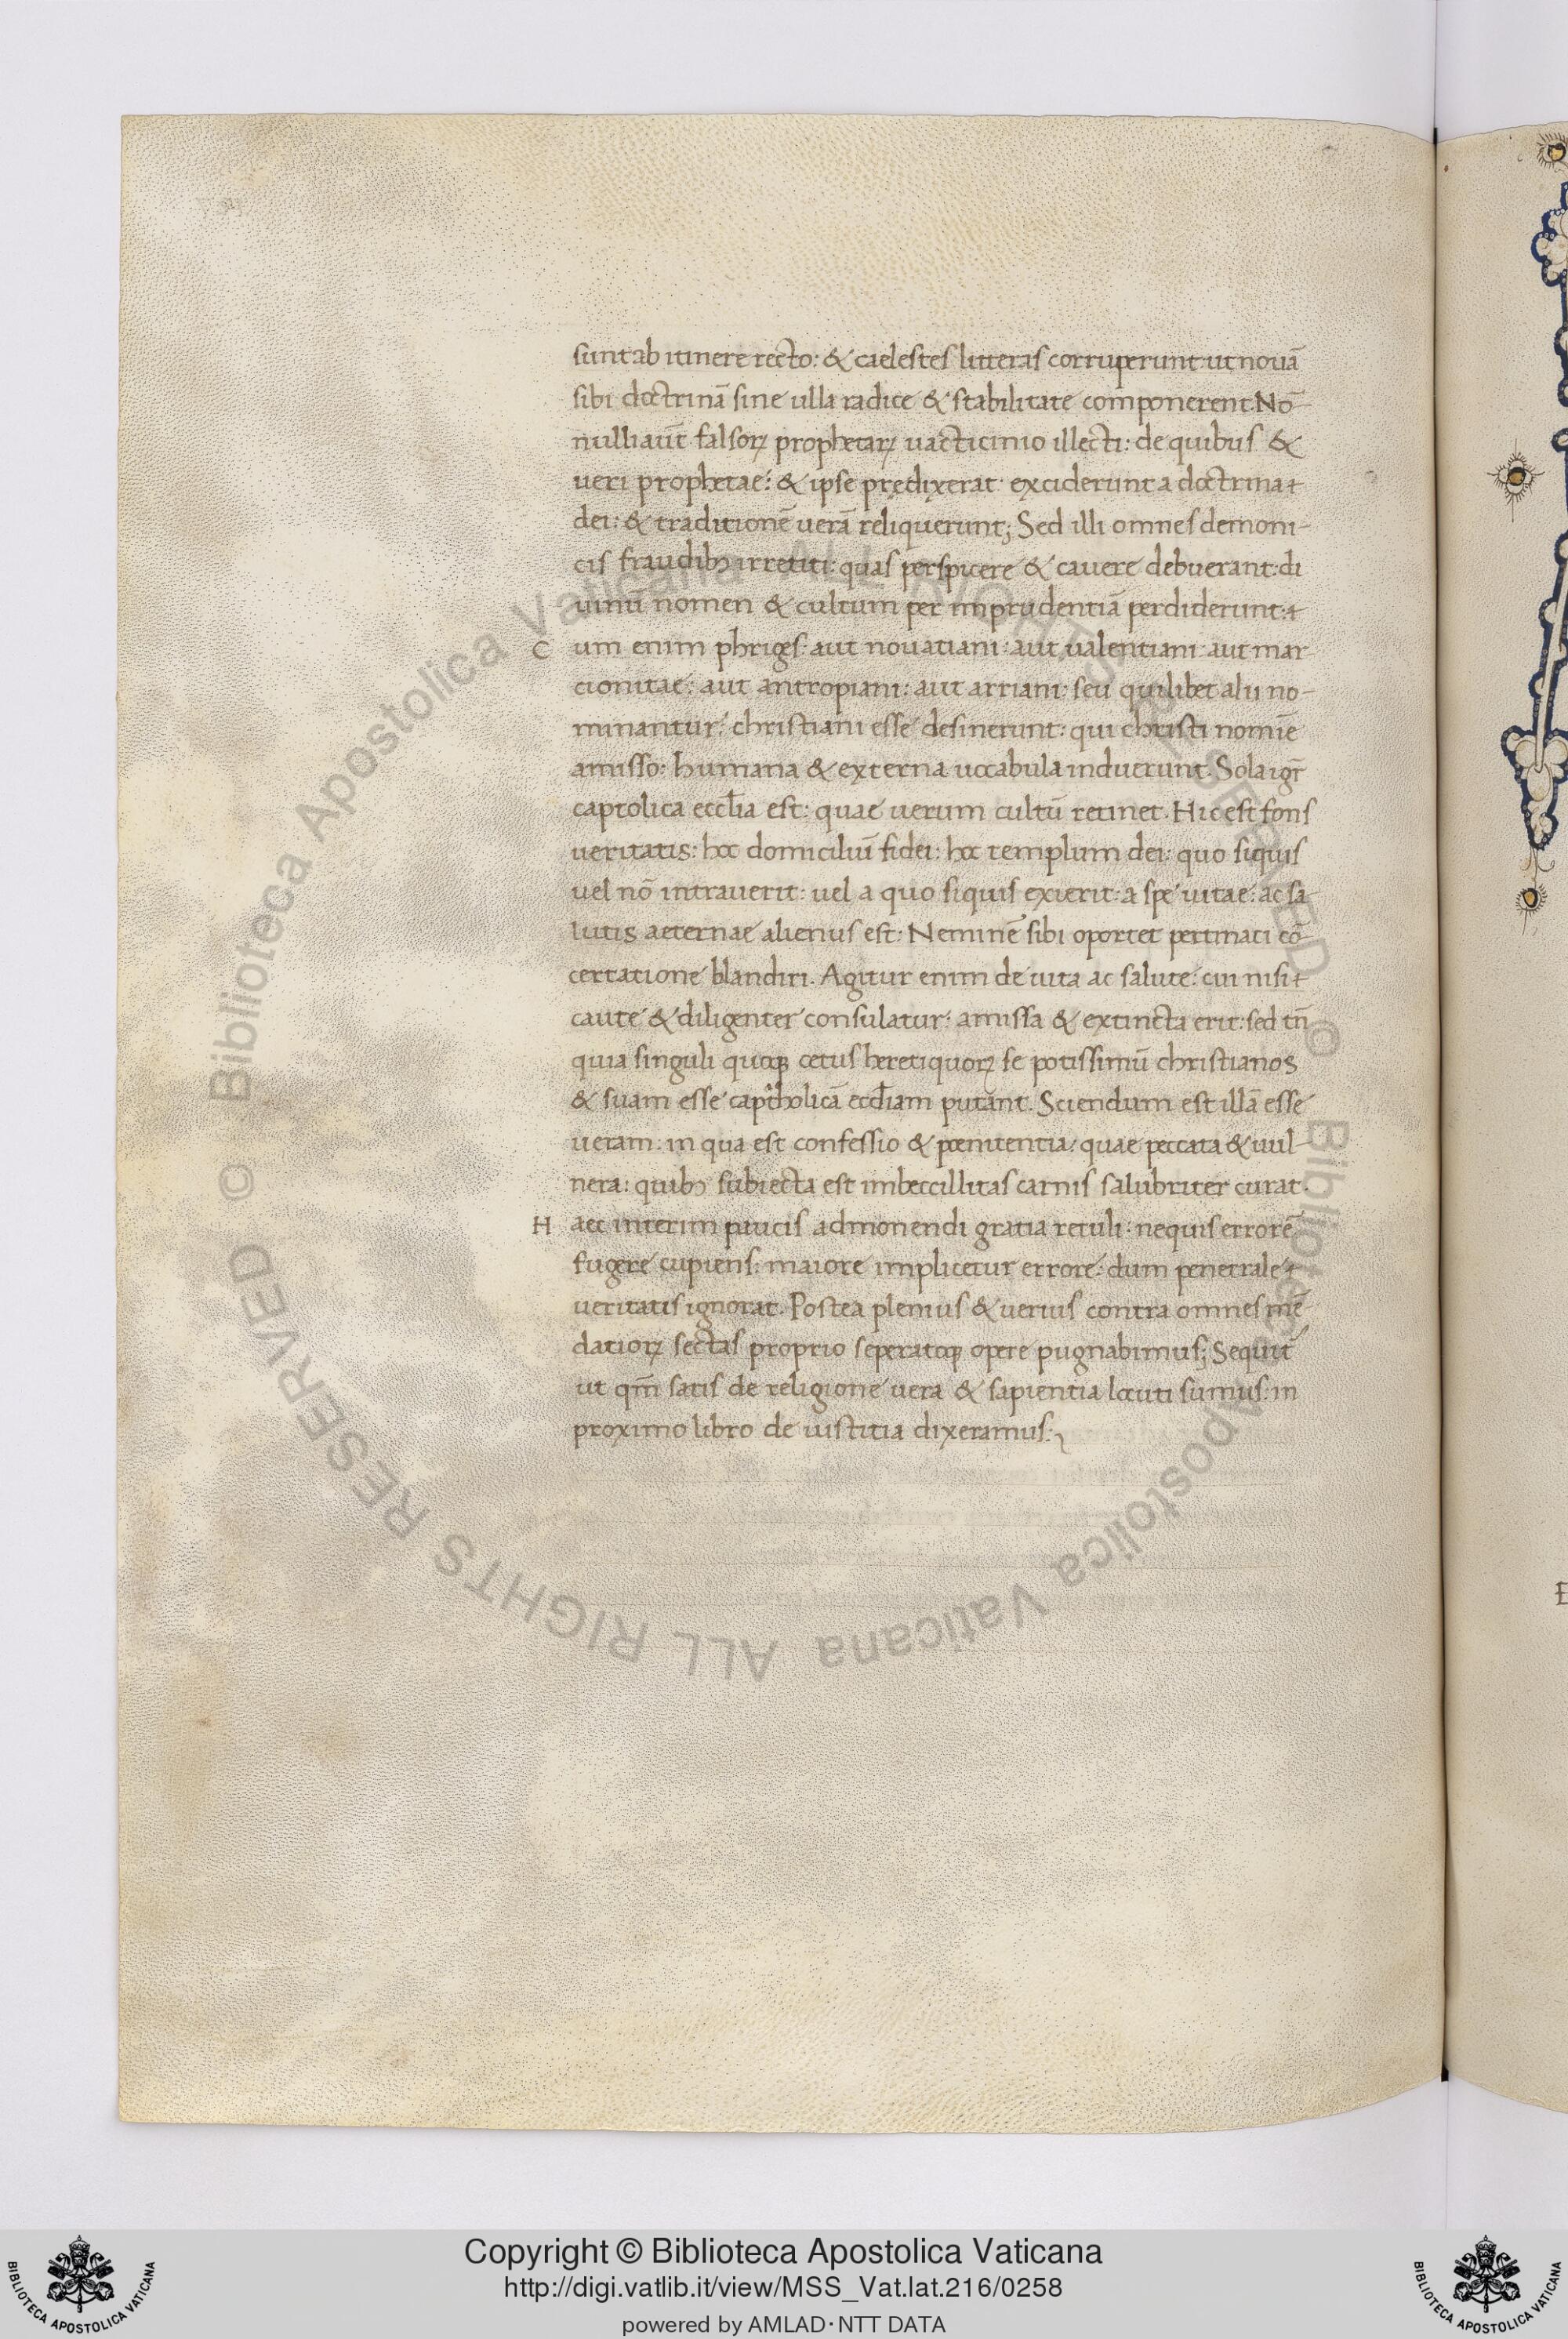 sunt ab itinere recto: & caelestes litteras corruperunt: ut nouā
sibi doctrinā sine ulla radice & stabilitate componerent. Nō-
nulli aut̄ falsoꝝ prophetaꝝ uacticinio illecti: de quibus &
ueri prophetae: & ipse prędixerat: exciderunt a doctrina
dei: & traditionē uerā reliquerunt; Sed illi omnes demoni-
cis fraudibꝫ irretiti: quas perspicere & cauere debuerant: di
uinū nomen & cultum per imprudentiā perdiderunt:
C um enim phriges: aut nouatiani: aut ualentiani: aut mar-
cionitae: aut antropiani: aut arriani: seu quilibet alii no-
minantur: christiani esse desinerunt: qui christi nomīe
amisso: humana & externa uocabula induerunt. Sola igr̄
captolica eccl̄ia est: quae uerum cultū retinet. Hic est fons
ueritatis: hoc domiciliū fidei: hoc templum dei: quo siquis
uel nō intrauerit: uel a quo siquis exierit: a spe uitae: ac sa-
lutis aeternae alienus est: Neminē sibi oportet pertinati cō-
certatione blandiri. Agitur enim de uita ac salute: cui nisi
caute & diligenter consulatur: amissa & extincta erit: sed tn̄
quia singuli quoqꝫ cetus heretiquoꝝ se potissimū christianos
& suam esse captholicā eccl̄iam putant. Sciendum est illā esse
ueram: in qua est confessio & poenitentia: quae peccata & uul-
nera: quibꝫ subiecta est imbeccillitas carnis salubriter curat.
H aec interim paucis admonendi gratia retuli: nequis errorē
fugere cupiens: maiore implicetur errore: dum penetrale
ueritatis ignorat. Postea plenius & uerius contra omnes mē-
datioꝝ sectas proprio seperatoqꝫ opere pugnabimus; Sequit̄
ut qm̄ satis de religione uera & sapientia locuti sumus: in
proximo libro de iustitia dixeramus:
Biblioteca Apostolica Vaticana ALL RIGHTS RESERVED © Biblioteca Apostolica Vaticana ALL RIGHTS RESERVED ©
Copyright © Biblioteca Apostolica Vaticana
http://digi.vatlib.it/view/MSS_Vat.lat.216/0258
powered by AMLAD·NTT DATA
BIBLIOTECA APOSTOLICA VATICANA
BIBLIOTECA APOSTOLICA VATICANA